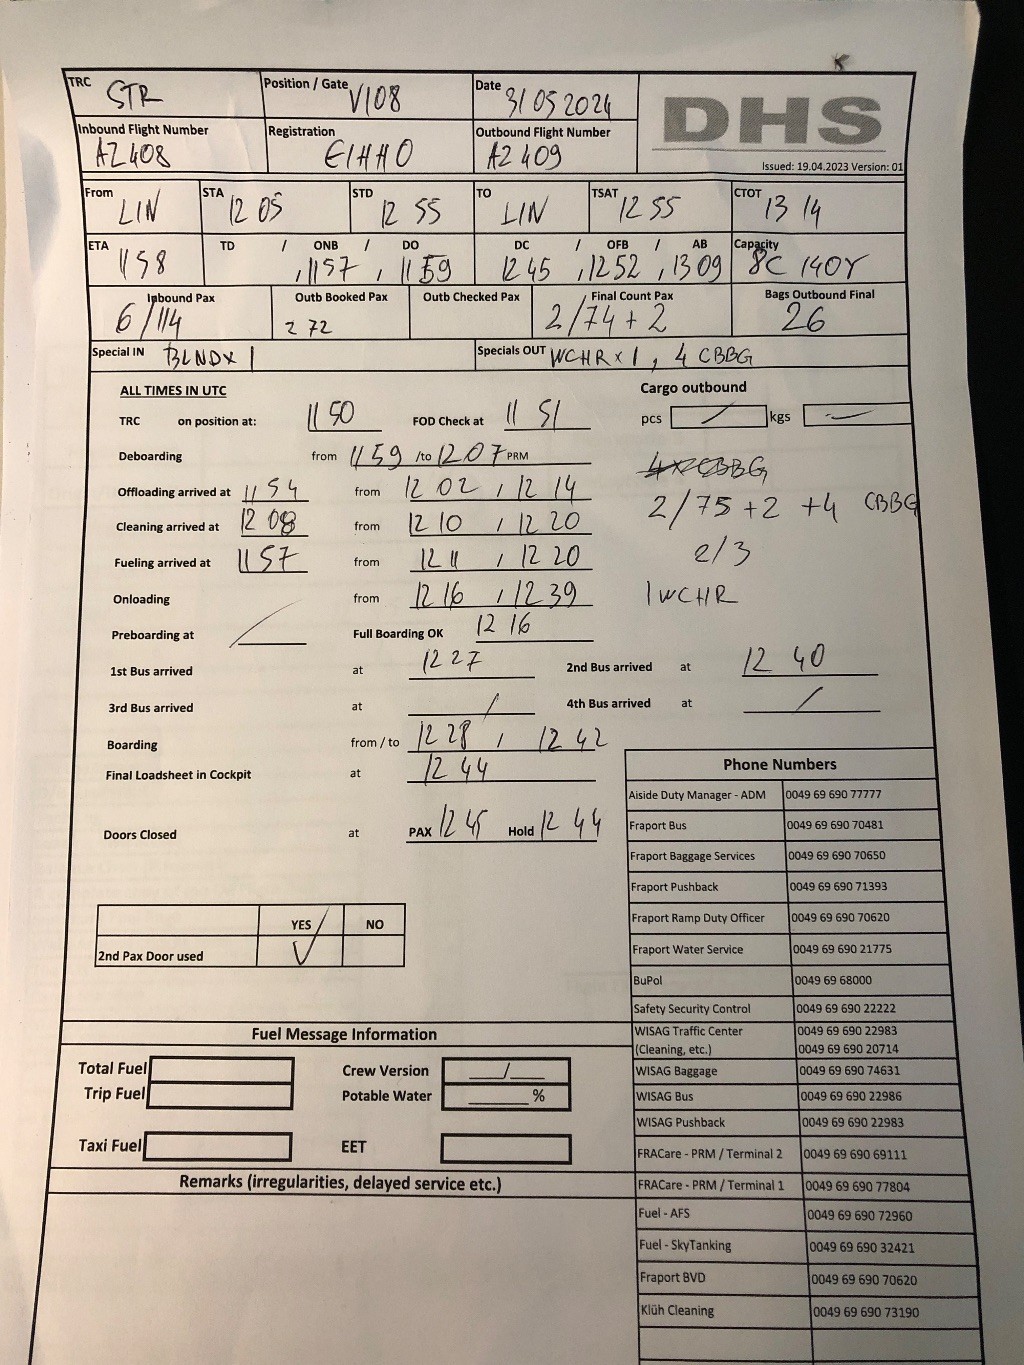 TRC STR Position / Gate V108 Date 31 05 2024 DHS
Inbound Flight Number AZ408 Registration EIHHO Outbound Flight Number AZ409
Issued: 19.04.2023 Version: 01
From LIN STA 12 05 STD 12 55 TO LIN TSAT 12 55 CTOT 13 14
ETA 1158 TD / ONB / DO , 1157 , 1159 DC / OFB / AB 1245 , 1252 , 1309 Capacity 8C 140Y
Inbound Pax 6/114 Outb Booked Pax 2 72 Outb Checked Pax Final Count Pax 2/74 + 2 Bags Outbound Final 26
Special IN BLNDX 1 Specials OUT WCHR x 1 , 4 CBBG
ALL TIMES IN UTC Cargo outbound
TRC on position at: 11 50 FOD Check at 11 51 pcs / kgs —
Deboarding from 1159 /to 1207 PRM
Offloading arrived at 1154 from 12 02 , 12 14 4xCBBG
Cleaning arrived at 12 08 from 12 10 , 12 20 2/75 +2 +4 CBBG
Fueling arrived at 1157 from 12 11 , 12 20 2/3
Onloading from 12 16 , 12 39 1 WCHR
Preboarding at / Full Boarding OK 12 16
1st Bus arrived at 12 27 2nd Bus arrived at 12 40
3rd Bus arrived at / 4th Bus arrived at /
Boarding from / to 12 28 , 12 42
Final Loadsheet in Cockpit at 12 44
Doors Closed at PAX 12 45 Hold 12 44
YES NO
2nd Pax Door used V
Phone Numbers
Aiside Duty Manager - ADM 0049 69 690 77777
Fraport Bus 0049 69 690 70481
Fraport Baggage Services 0049 69 690 70650
Fraport Pushback 0049 69 690 71393
Fraport Ramp Duty Officer 0049 69 690 70620
Fraport Water Service 0049 69 690 21775
BuPol 0049 69 68000
Safety Security Control 0049 69 690 22222
WISAG Traffic Center 0049 69 690 22983
(Cleaning, etc.) 0049 69 690 20714
WISAG Baggage 0049 69 690 74631
WISAG Bus 0049 69 690 22986
WISAG Pushback 0049 69 690 22983
FRACare - PRM / Terminal 2 0049 69 690 69111
FRACare - PRM / Terminal 1 0049 69 690 77804
Fuel - AFS 0049 69 690 72960
Fuel - SkyTanking 0049 69 690 32421
Fraport BVD 0049 69 690 70620
Klüh Cleaning 0049 69 690 73190
Fuel Message Information
Total Fuel Crew Version ___/___
Trip Fuel Potable Water ______ %
Taxi Fuel EET
Remarks (irregularities, delayed service etc.)